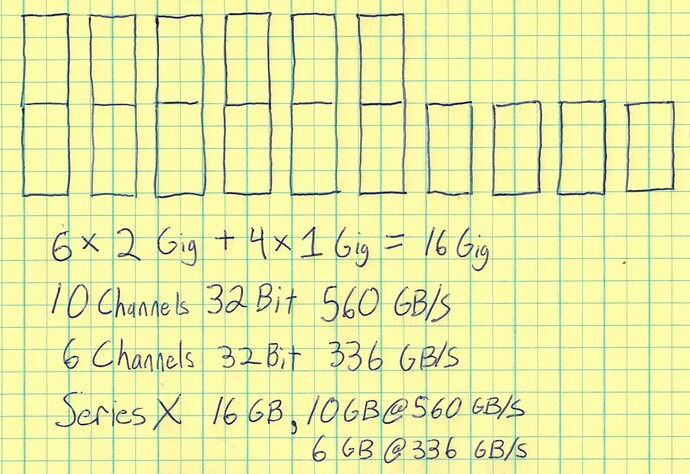 6 x 2 Gig + 4 x 1 Gig = 16 Gig
10 Channels 32 Bit 560 GB/s
6 Channels 32 Bit 336 GB/s
Series X 16 GB, 10 GB @ 560 GB/s
6 GB @ 336 GB/s